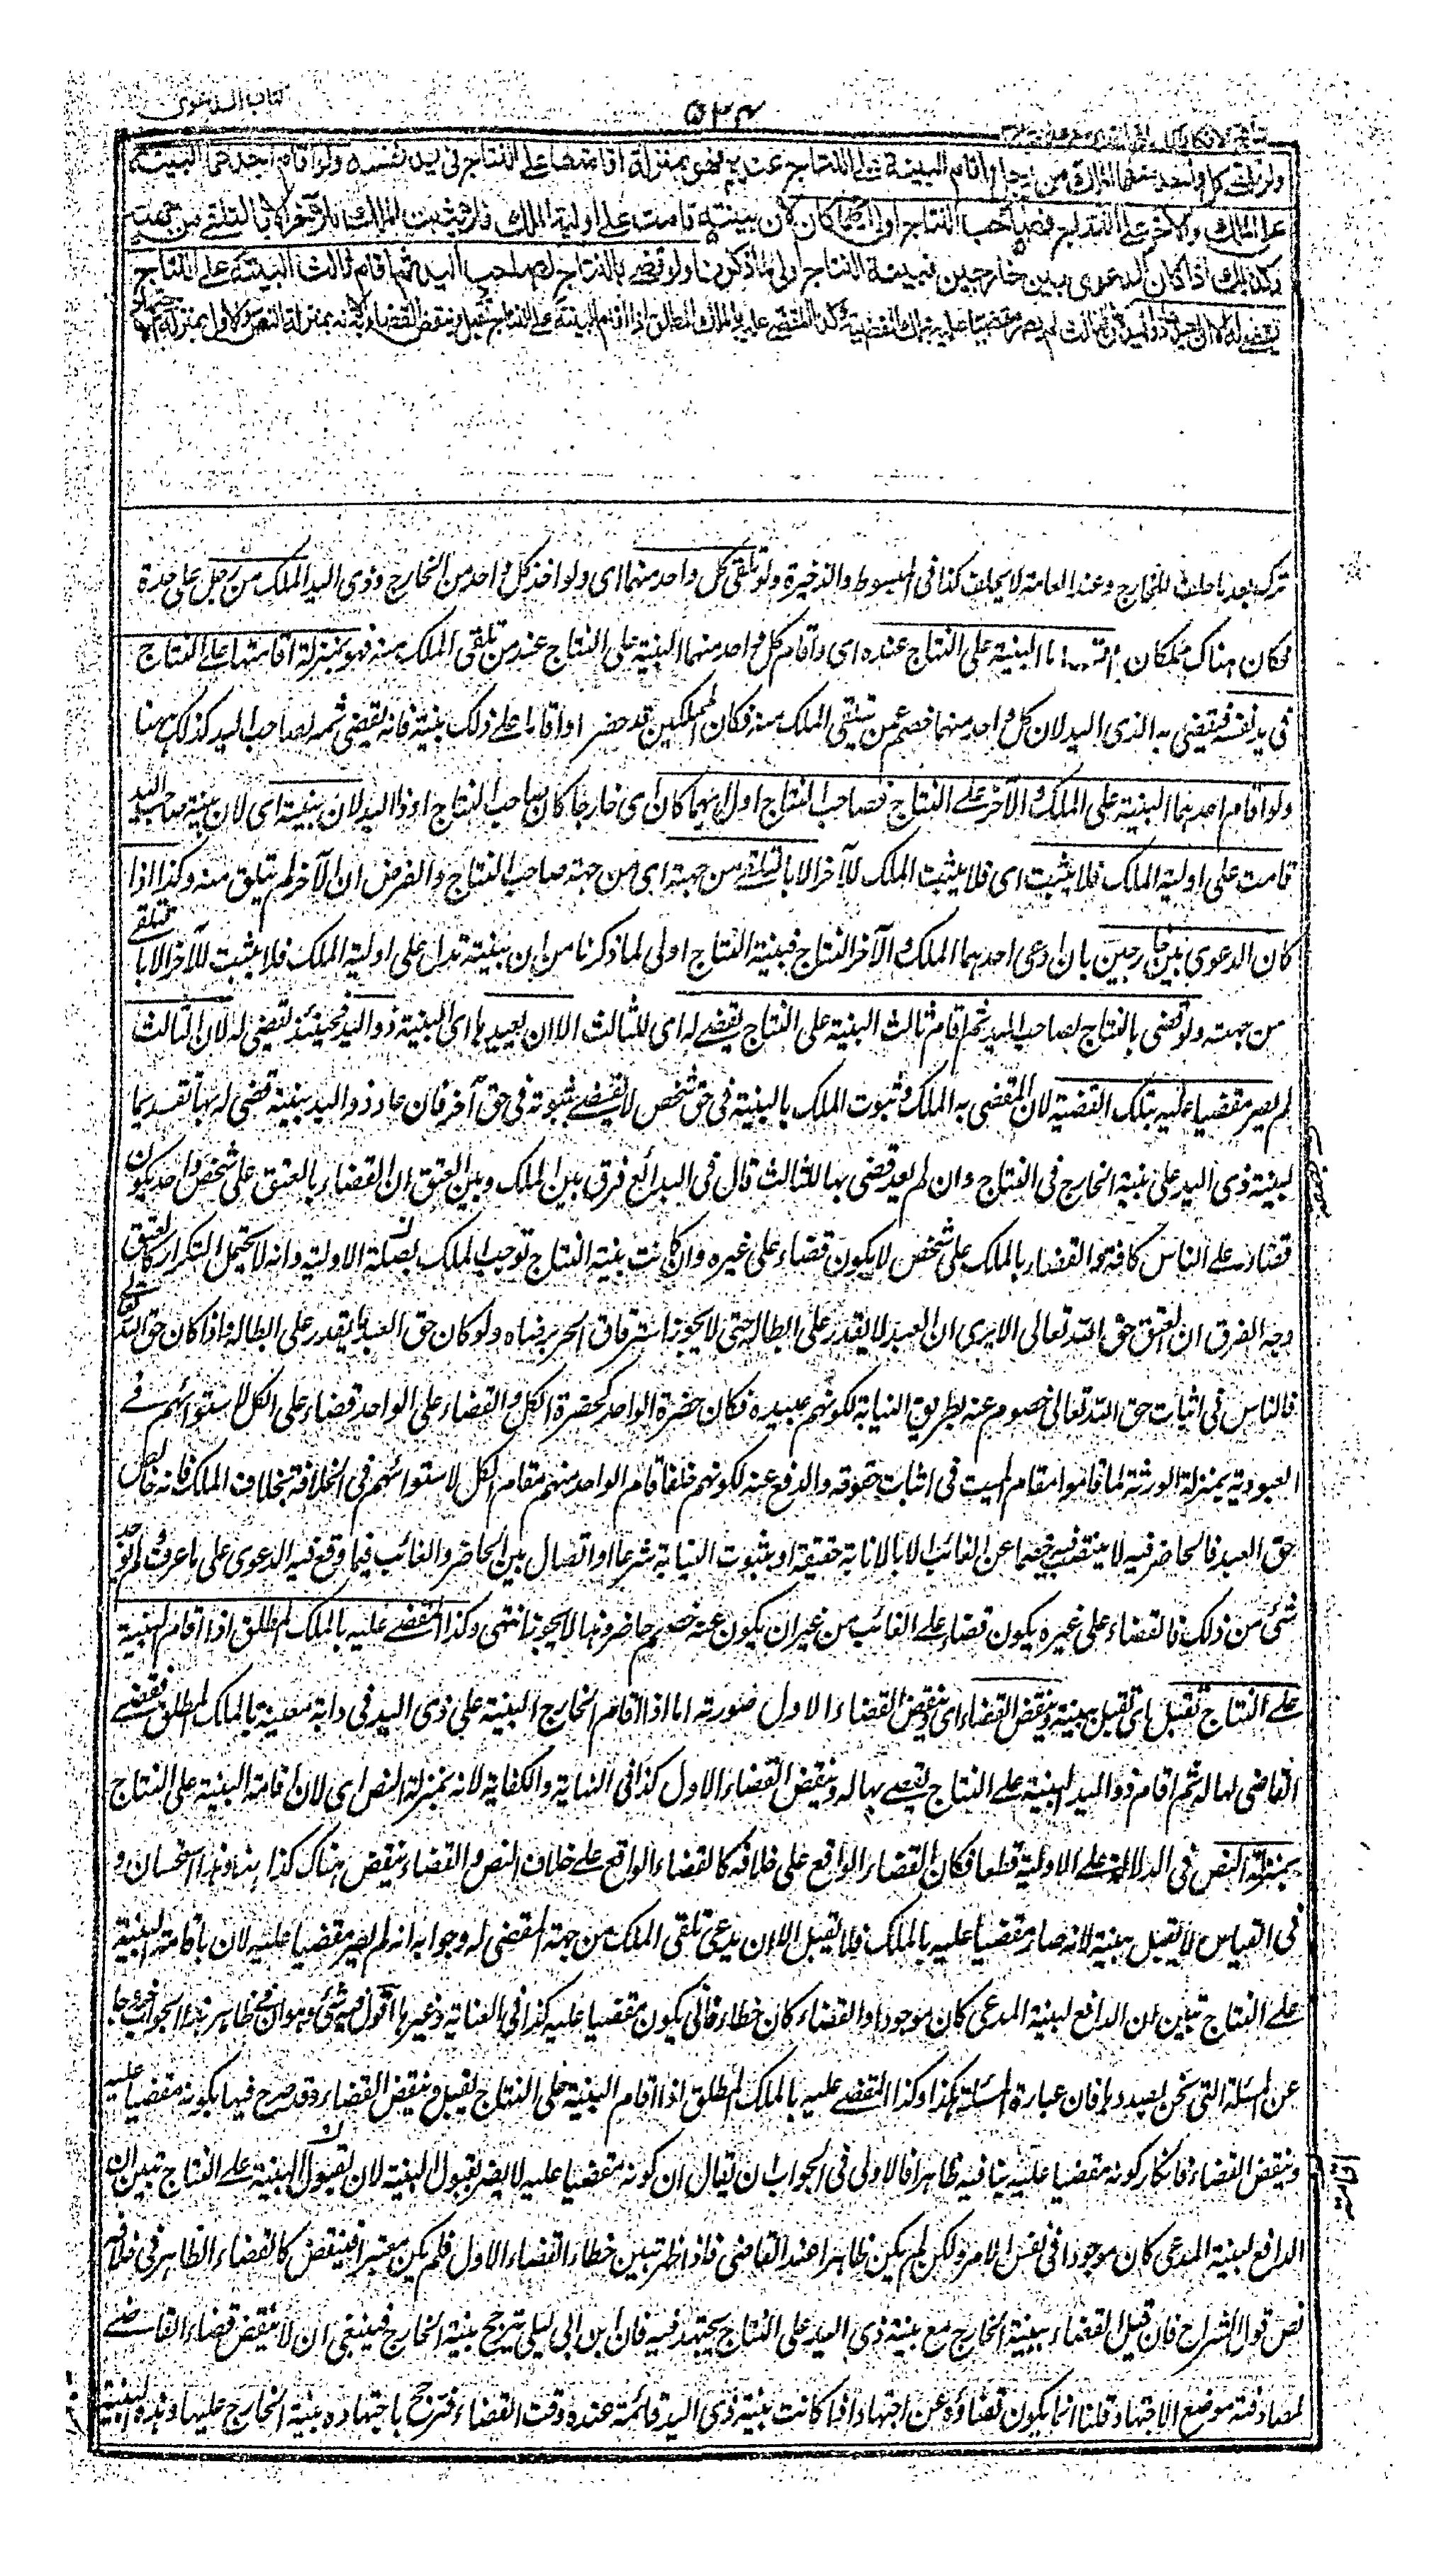 كتاب الدعوى
۵۳۴
ولو تلقى كل واحد منهما الملك من رجل واقام البينة على النتاج عنده فهو بمنزلة اقامتها على النتاج في يد نفسه ولو اقام احدهما البينة
على الملك والآخر على النتاج فصاحب النتاج اولى ايهما كان لان بينته قامت على اولية الملك فلا يثبت الملك للآخر الا بالتلقي من جهته
وكذلك اذا كان الدعوى بين خارجين فبينة النتاج اولى لما ذكرنا ولو قضى بالنتاج لصاحب اليد ثم اقام ثالث البينة على النتاج
يقضى له الا ان يعيدها ذو اليد لان الثالث لم يصر مقضيا عليه بتلك القضية وكذا المقضي عليه بالملك المطلق اذا اقام البينة على النتاج تقبل وينقض القضاء لانه بمنزلة النص والاول بمنزلة الاجتهاد
تركه بعد ما حلف للخارج وعند العامة لا يحلف كذا في المبسوط والذخيرة ولو تلقى كل واحد منهما اى ولو اخذ كل واحد من الخارج وذى اليد الملك من رجل على حدة
فكان هناك مملكان واقاما البينة على النتاج عنده اى واقام كل واحد منهما البينة على النتاج عند من تلقى الملك منه فهو بمنزلة اقامتها على النتاج
في يد نفسه فيقضى به الذى اليد لان كل واحد منهما خصم عمن يتلقى الملك منه فكان المملكين قد حضرا واقاما على ذلك بينة فانه يقضى ثمه لصاحب اليد كذلك ههنا
ولو اقام احدهما البينة على الملك والآخر على النتاج فصاحب النتاج اولى ايهما كان اى خارجا كان صاحب النتاج او ذا اليد لان بينته اى لان بينة صاحب اليد
قامت على اولية الملك فلا يثبت اى فلا يثبت الملك للآخر الا بالتلقى من جهته اى من جهة صاحب النتاج والفرض ان الآخر لم يتلق منه وكذا اذا
كان الدعوى بين خارجين بان ادعى احدهما الملك والآخر النتاج فبينة النتاج اولى لما ذكرنا من ان بينته تدل على اولية الملك فلا يثبت للآخر الا بالتلقى
من جهته ولو قضى بالنتاج لصاحب اليد ثم اقام ثالث البينة على النتاج يقضى له اى للثالث الا ان يعيدها اى البينة ذو اليد فحينئذ يقضى له لان الثالث
لم يصر مقضيا عليه بتلك القضية لان المقضى به الملك وثبوت الملك بالبينة في حق شخص لا يقتضى ثبوته في حق آخر فان عاد ذو اليد ببينة قضى له بها تقديما
لبينة ذى اليد على بينة الخارج في النتاج وان لم يعد قضى بها للثالث قال في البدائع فرق بين الملك وبين العتق ان القضاء بالعتق على شخص واحد يكون
قضاء على الناس كافة والقضاء بالملك على شخص لا يكون قضاء على غيره وان كانت بينة النتاج توجب الملك بصفة الاولية وانه لا يحتمل التكرار كالعتق
وجه الفرق ان العتق حق الله تعالى الا يرى ان العبد لا يقدر على ابطاله حتى لا يجوز استرقاق الحر برضاه ولو كان حق العبد لقدر على ابطاله واذا كان حق الله تعالى
فالناس في اثبات حق الله تعالى خصوم عنه بطريق النيابة لكونهم عبيده فكان حضرة الواحد كحضرة الكل والقضاء على الواحد قضاء على الكل لاستوائهم في
العبودية بمنزلة الورثة لما قاموا مقام الميت في اثبات حقوقه والدفع عنه لكونهم خلفا قام الواحد منهم مقام الكل لاستوائهم في الخلافة بخلاف الملك فانه خالص
حق العبد فالحاضر فيه لا ينتصب خصما عن الغائب الا بالانابة حقيقة او بثبوت النيابة شرعا او اتصال بين الحاضر والغائب فيما وقع فيه الدعوى على ما عرف ولم يوجد
شئ من ذلك فالقضاء على غيره يكون قضاء على الغائب من غير ان يكون عنه خصم حاضر وهذا لا يجوز انتهى وكذا المقضى عليه بالملك المطلق اذا اقام البينة
على النتاج تقبل اى تقبل بينته وينقض القضاء اى وينقض القضاء الاول صورته ما اذا اقام الخارج البينة على ذى اليد في دابة معينة بالملك المطلق فقضى
القاضى بها له ثم اقام ذو اليد البينة على النتاج يقضى بها له وينقض القضاء الاول كذا في النهاية والكفاية لانه بمنزلة النص اى لان اقامة البينة على النتاج
بمنزلة النص في الدلالة على الاولية قطعا فكان القضاء الواقع على خلافه كالقضاء الواقع على خلاف النص والقضاء ينقض هناك كذا ههنا وهذا استحسان و
في القياس لا يقبل بينته لانه صار مقضيا عليه بالملك فلا تقبل الا ان يدعى تلقى الملك من جهة المقضى له وجوابه انه لم يصر مقضيا عليه لان باقامة البينة
على النتاج تبين ان الدافع لبينة المدعى كان موجودا والقضاء كان خطأ فانى يكون مقضيا عليه كذا في العناية وغيرها اقول فيه شئ وهو ان ظاهر هذا الجواب خارجا
عن المسئلة التى نحن بصددها فان عبارة المسئلة هكذا وكذا المقضى عليه بالملك المطلق اذا اقام البينة على النتاج تقبل وينقض القضاء وقد صرح فيها بكونه مقضيا عليه
وينقض القضاء فانكار كونه مقضيا عليه ينافيه ظاهرا فالاولى في الجواب ان يقال ان كونه مقضيا عليه لا يضر بقبول البينة لان بقبول البينة على النتاج تبين ان
الدافع لبينة المدعى كان موجودا في نفس الامر ولكن لم يكن ظاهرا عند القاضى فاذا ظهر تبين خطاء القضاء الاول فلم يكن معتبرا فينقض كالقضاء الظاهر في خلافه
نص قول الشراح فان قيل القضاء ببينة الخارج مع بينة ذى اليد على النتاج مجتهد فيه فان ابن ابى ليلى يرجح بينة الخارج فينبغى ان لا ينقض قضاء القاضى
لمصادفته موضع الاجتهاد قلنا انما يكون قضاؤه عن اجتهاد اذا كانت بينة ذى اليد قائمة عنده وقت القضاء فترجح باجتهاده بينة الخارج عليها وهذه البينة